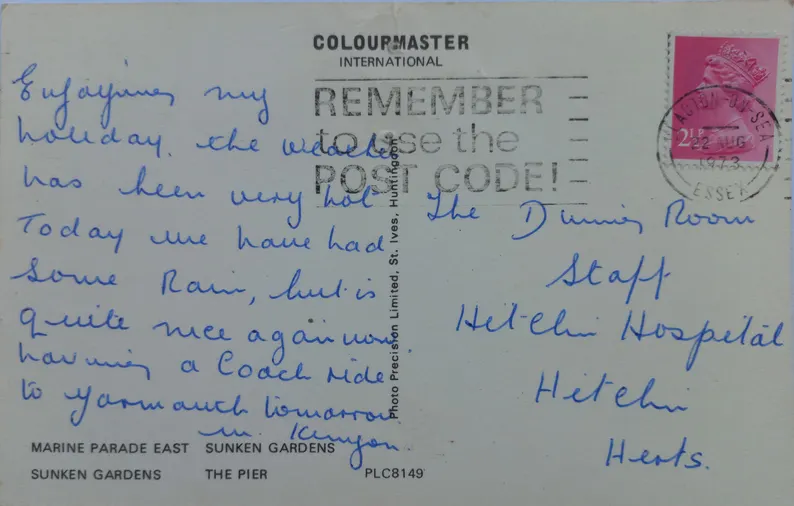 COLOURMASTER
INTERNATIONAL
REMEMBER
to use the
POST CODE!
2½P
ACTON-ON-SEA
22 AUG
1973
ESSEX
Enjoying my
holiday. the weather
has been very hot
Today we have had
some Rain, but is
quite nice again now
having a Coach ride
to yarmouth tomorrow
m. Kenyon.
The Dinning Room
Staff
Hitchin Hospital
Hitchin
Herts.
Photo Precision Limited, St. Ives, Huntingdon
MARINE PARADE EAST SUNKEN GARDENS
SUNKEN GARDENS THE PIER PLC8149